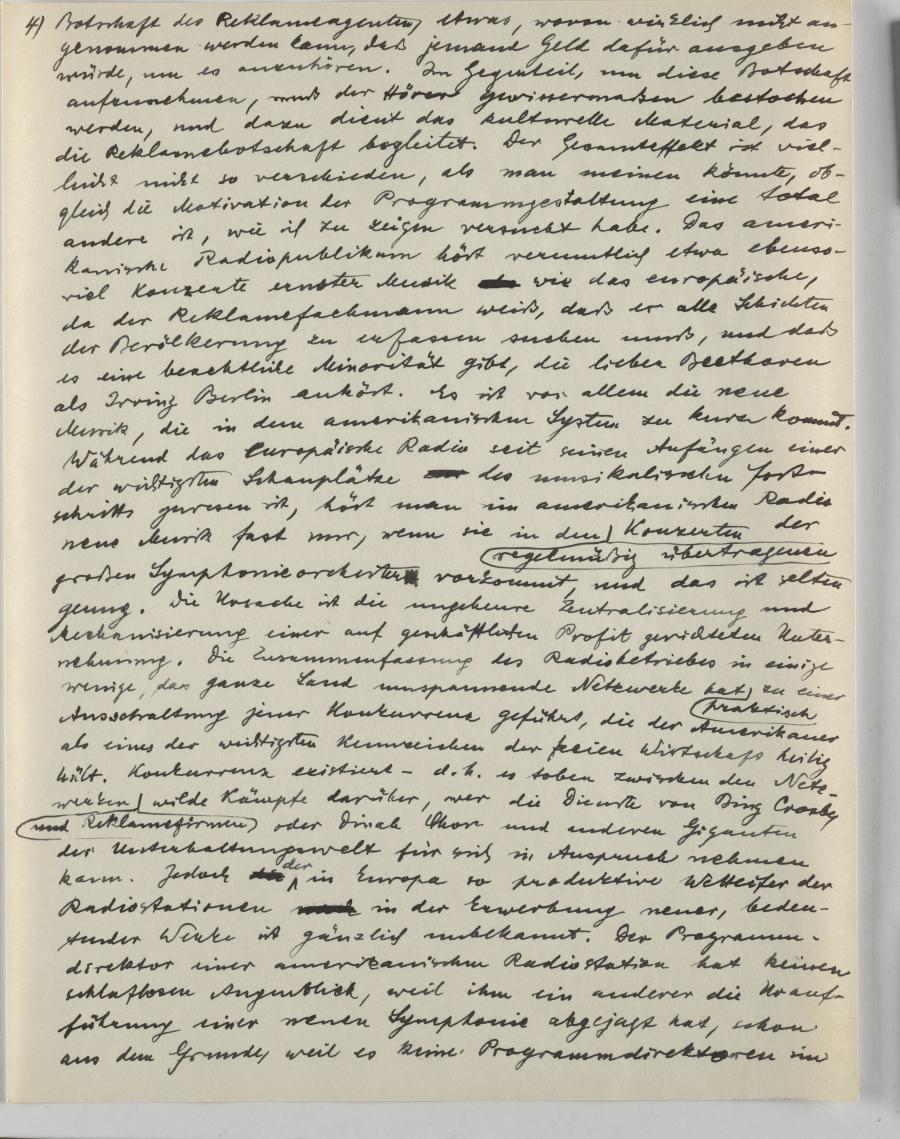 4) Botschaft des Reklameagenten, etwas, wovon wirklich nicht an-
genommen werden kann, daß jemand Geld dafür ausgeben
würde, um es anzuhören. Im Gegenteil, um diese Botschaft
aufzunehmen, muß der Hörer gewissermaßen bestochen
werden, und dazu dient das kulturelle Material, das
die Reklamebotschaft begleitet. Der Gesamteffekt ist viel-
leicht nicht so verschieden, als man meinen könnte, ob-
gleich die Motivation der Programmgestaltung eine total
andere ist, wie ich zu zeigen versucht habe. Das ameri-
kanische Radiopublikum hört vermutlich etwa ebenso-
viel Konzerte ernster Musik wie das europäische,
da der Reklamefachmann weiß, daß er alle Schichten
der Bevölkerung zu erfassen suchen muß, und daß
es eine beachtliche Minorität gibt, die lieber Beethoven
als Irving Berlin anhört. Es ist vor allem die neue
Musik, die in dem amerikanischen System zu kurz kommt.
Während das Europäische Radio seit seinen Anfängen einer
der wichtigsten Schauplätze des musikalischen Fort-
schritts gewesen ist, hört man im amerikanischen Radio
neue Musik fast nur, wenn sie in den Konzerten der
regelmäßig übertragenen
großen Symphonieorchester vorkommt, und das ist selten
genug. Die Ursache ist die ungeheure Zentralisierung und
Mechanisierung einer auf geschäftlichen Profit gerichteten Unter-
nehmung. Die Zusammenfassung des Radiobetriebes in einige
wenige, das ganze Land umspannende Netzwerke hat zu einer
praktisch
Ausschaltung jener Konkurrenz geführt, die der Amerikaner
als eines der wichtigsten Kennzeichen der freien Wirtschaft heilig
hält. Konkurrenz existiert – d.h. es toben zwischen den Netz-
werken wilde Kämpfe darüber, wer die Dienste von Bing Crosby
und Reklamefirmen oder Dinah Shore und anderen Giganten
der Unterhaltungswelt für sich in Anspruch nehmen
kann. Jedoch der in Europa so produktive Wetteifer der
Radiostationen in der Erwerbung neuer, bedeu-
tender Werke ist gänzlich unbekannt. Der Programm-
direktor einer amerikanischen Radiostation hat keinen
schlaflosen Augenblick, weil ihm ein anderer die Urauf-
führung einer neuen Symphonie abgejagt hat, schon
aus dem Grunde, weil es keine Programmdirektoren im